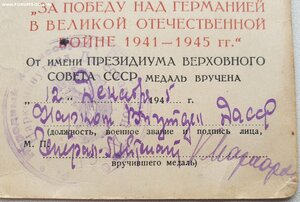 „ЗА ПОБЕДУ НАД ГЕРМАНИЕЙ
В ВЕЛИКОЙ ОТЕЧЕСТВЕННОЙ
ВОЙНЕ 1941—1945 гг."
ОТ ИМЕНИ ПРЕЗИДИУМА ВЕРХОВНОГО
СОВЕТА СССР МЕДАЛЬ ВРУЧЕНА
"12" Декабря 1945
Нарком Внутдел ДАССР
(должность, военное звание и подпись лица,
М. П. Генерал-Лейтенант
вручившего медаль)